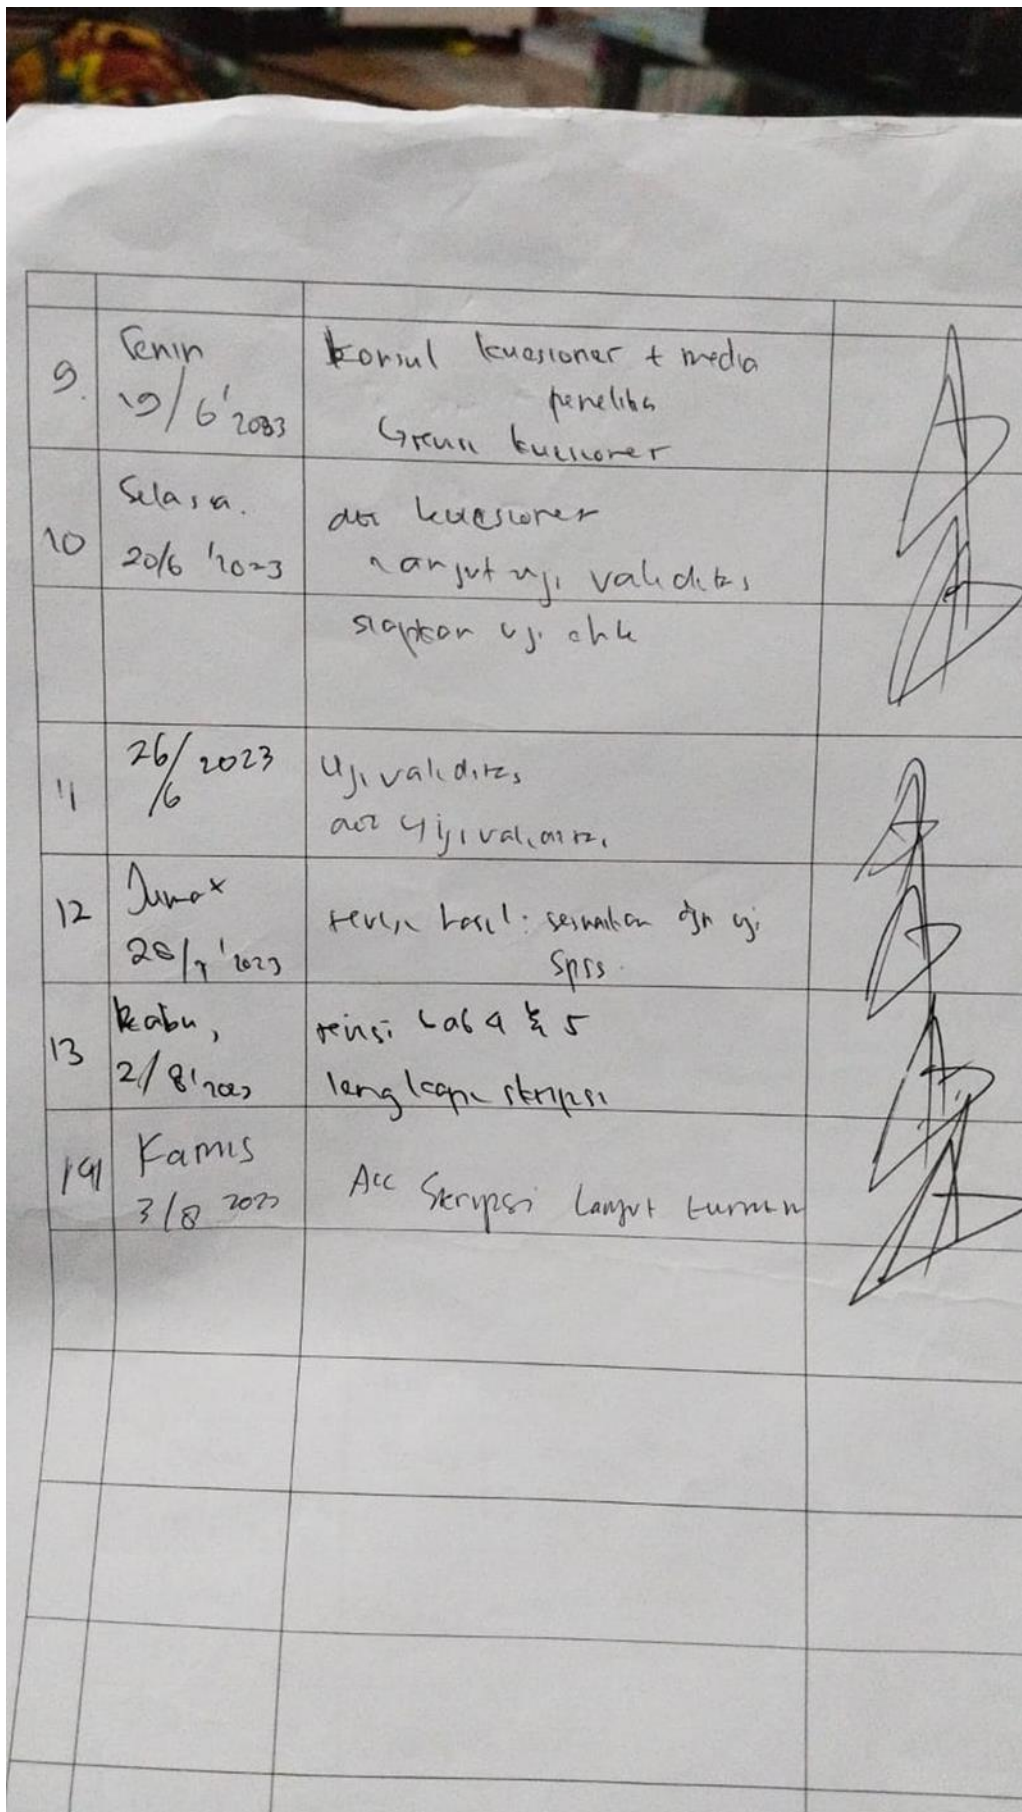 9.
Senin
19/6'2023
konsul kuesioner + media
peneliti
revisi kuesioner
10
Selasa.
20/6 '2023
acc kuesioner
lanjut uji validitas
siapkan uji etik
11
26/2023
/6
Uji validitas
acc uji validitas
12
Jumat
28/7'2023
revisi hasil: sesuaikan dgn uji
Spss.
13
Rabu,
2/8'2023
revisi bab 4 & 5
lengkapi skripsi
14
Kamis
3/8 2023
Acc Skripsi lanjut turnitin